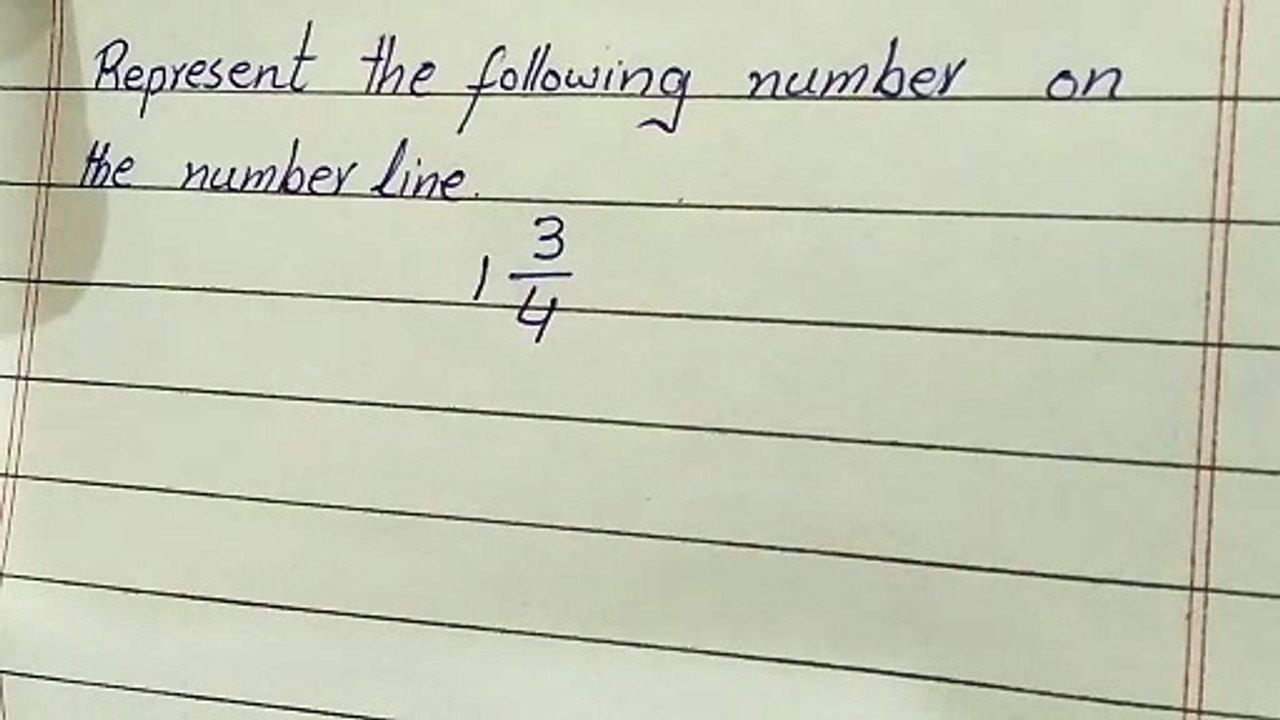 Represent the following number on
the number line.
1 3/4